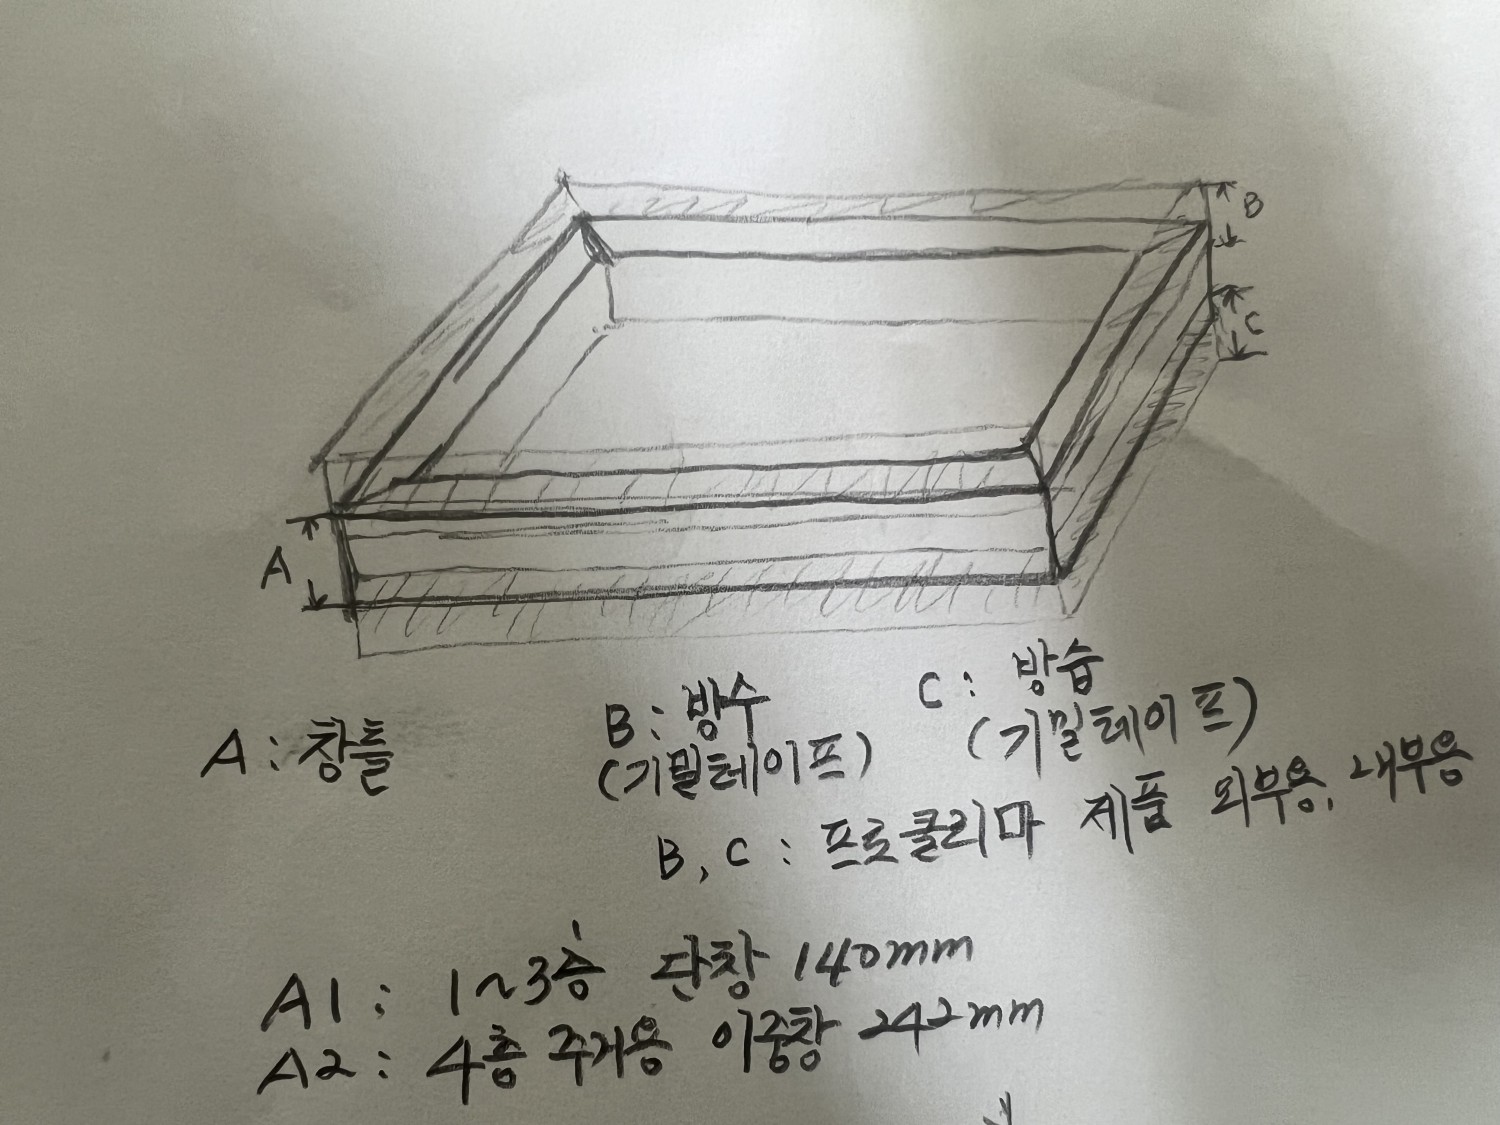 B
C
A
A : 창틀
B : 방수
(기밀테이프)
C : 방습
(기밀테이프)
B, C : 프로클리마 제품 외부용, 내부용
A1 : 1~3층 단창 140mm
A2 : 4층 주거용 이중창 242mm